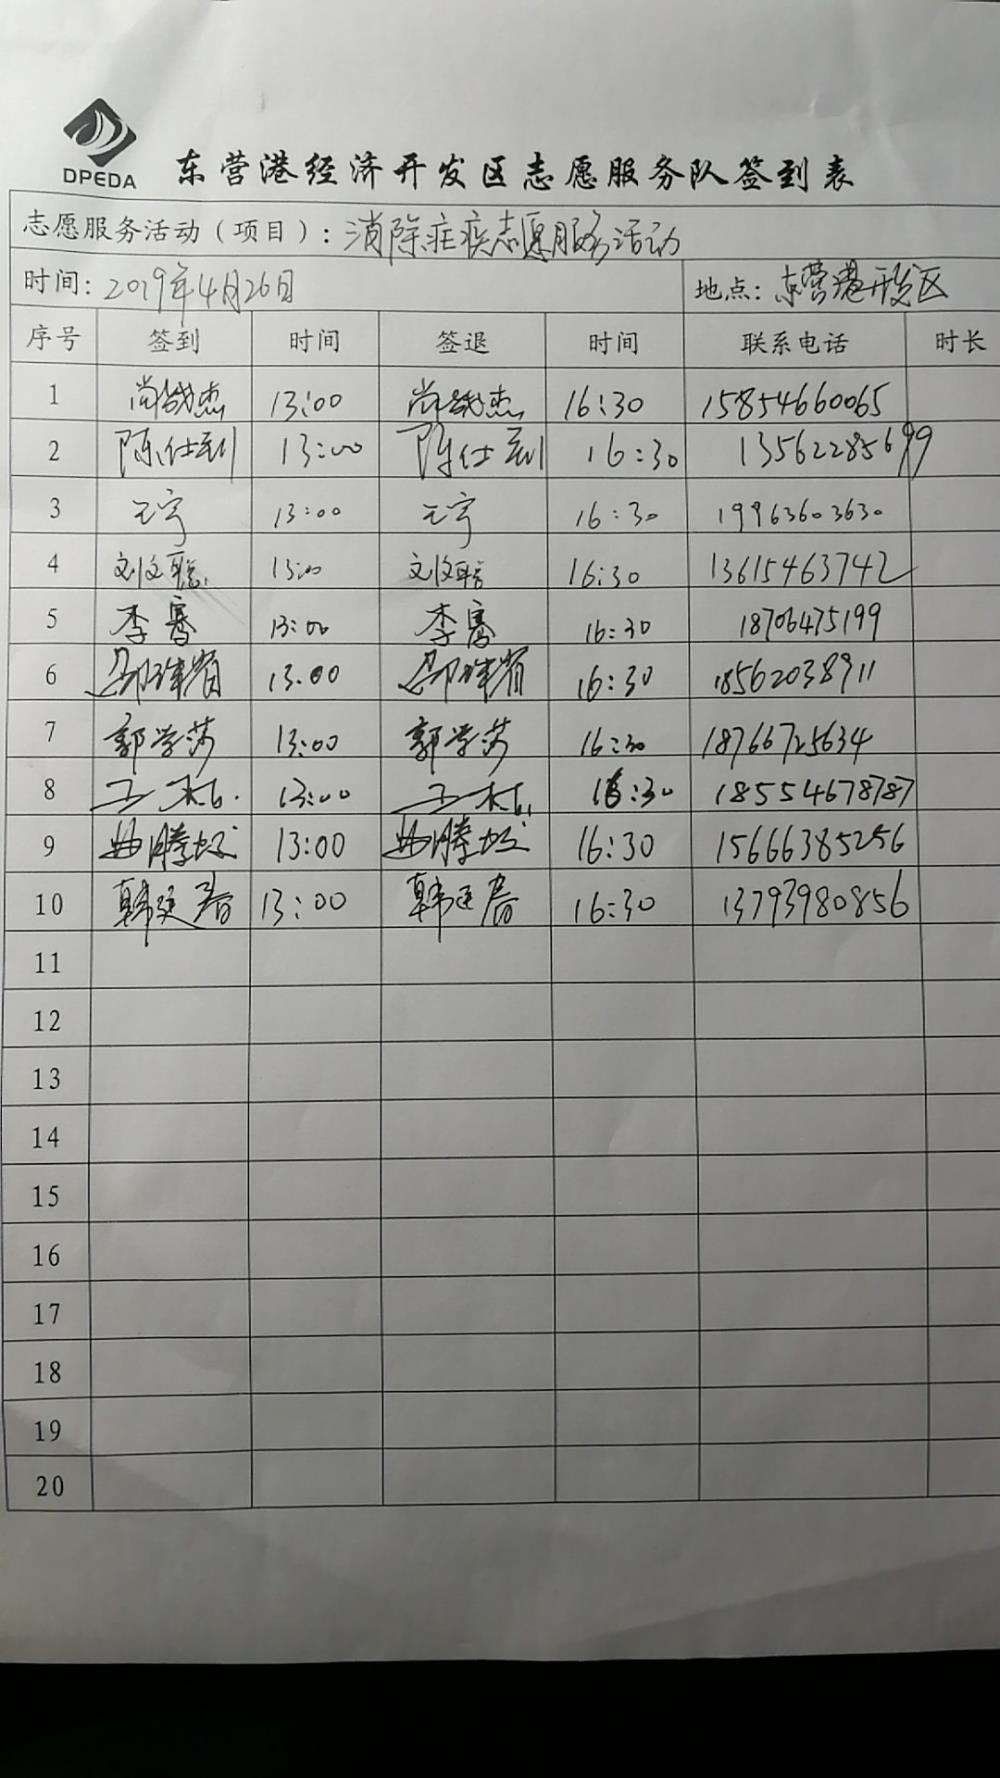 DPEDA
东营港经济开发区志愿服务队签到表
志愿服务活动（项目）：消除症疾志愿服务活动
时间：2019年4月26日 地点：东营港开发区
序号 签到 时间 签退 时间 联系电话 时长
1 尚战杰 13:00 尚战杰 16:30 15854660065
2 陈仕刚 13:00 陈仕刚 16:30 13562285699
3 王宇 13:00 王宇 16:30 19963603630
4 刘文聪 13:00 刘文聪 16:30 13615463742
5 李骞 13:00 李骞 16:30 18706475199
6 13:00 16:30 18562038911
7 郭学莎 13:00 郭学莎 16:30 18766725634
8 王 13:00 王 16:30 18554678787
9 曲腾蛟 13:00 曲腾蛟 16:30 15666385256
10 韩延春 13:00 韩延春 16:30 13793980856
11
12
13
14
15
16
17
18
19
20